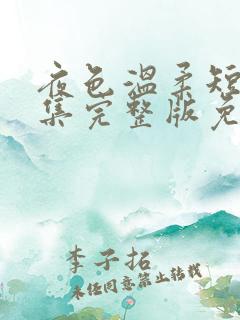 夜色温柔短
集完整版免
李子拓
未经同意禁止转载